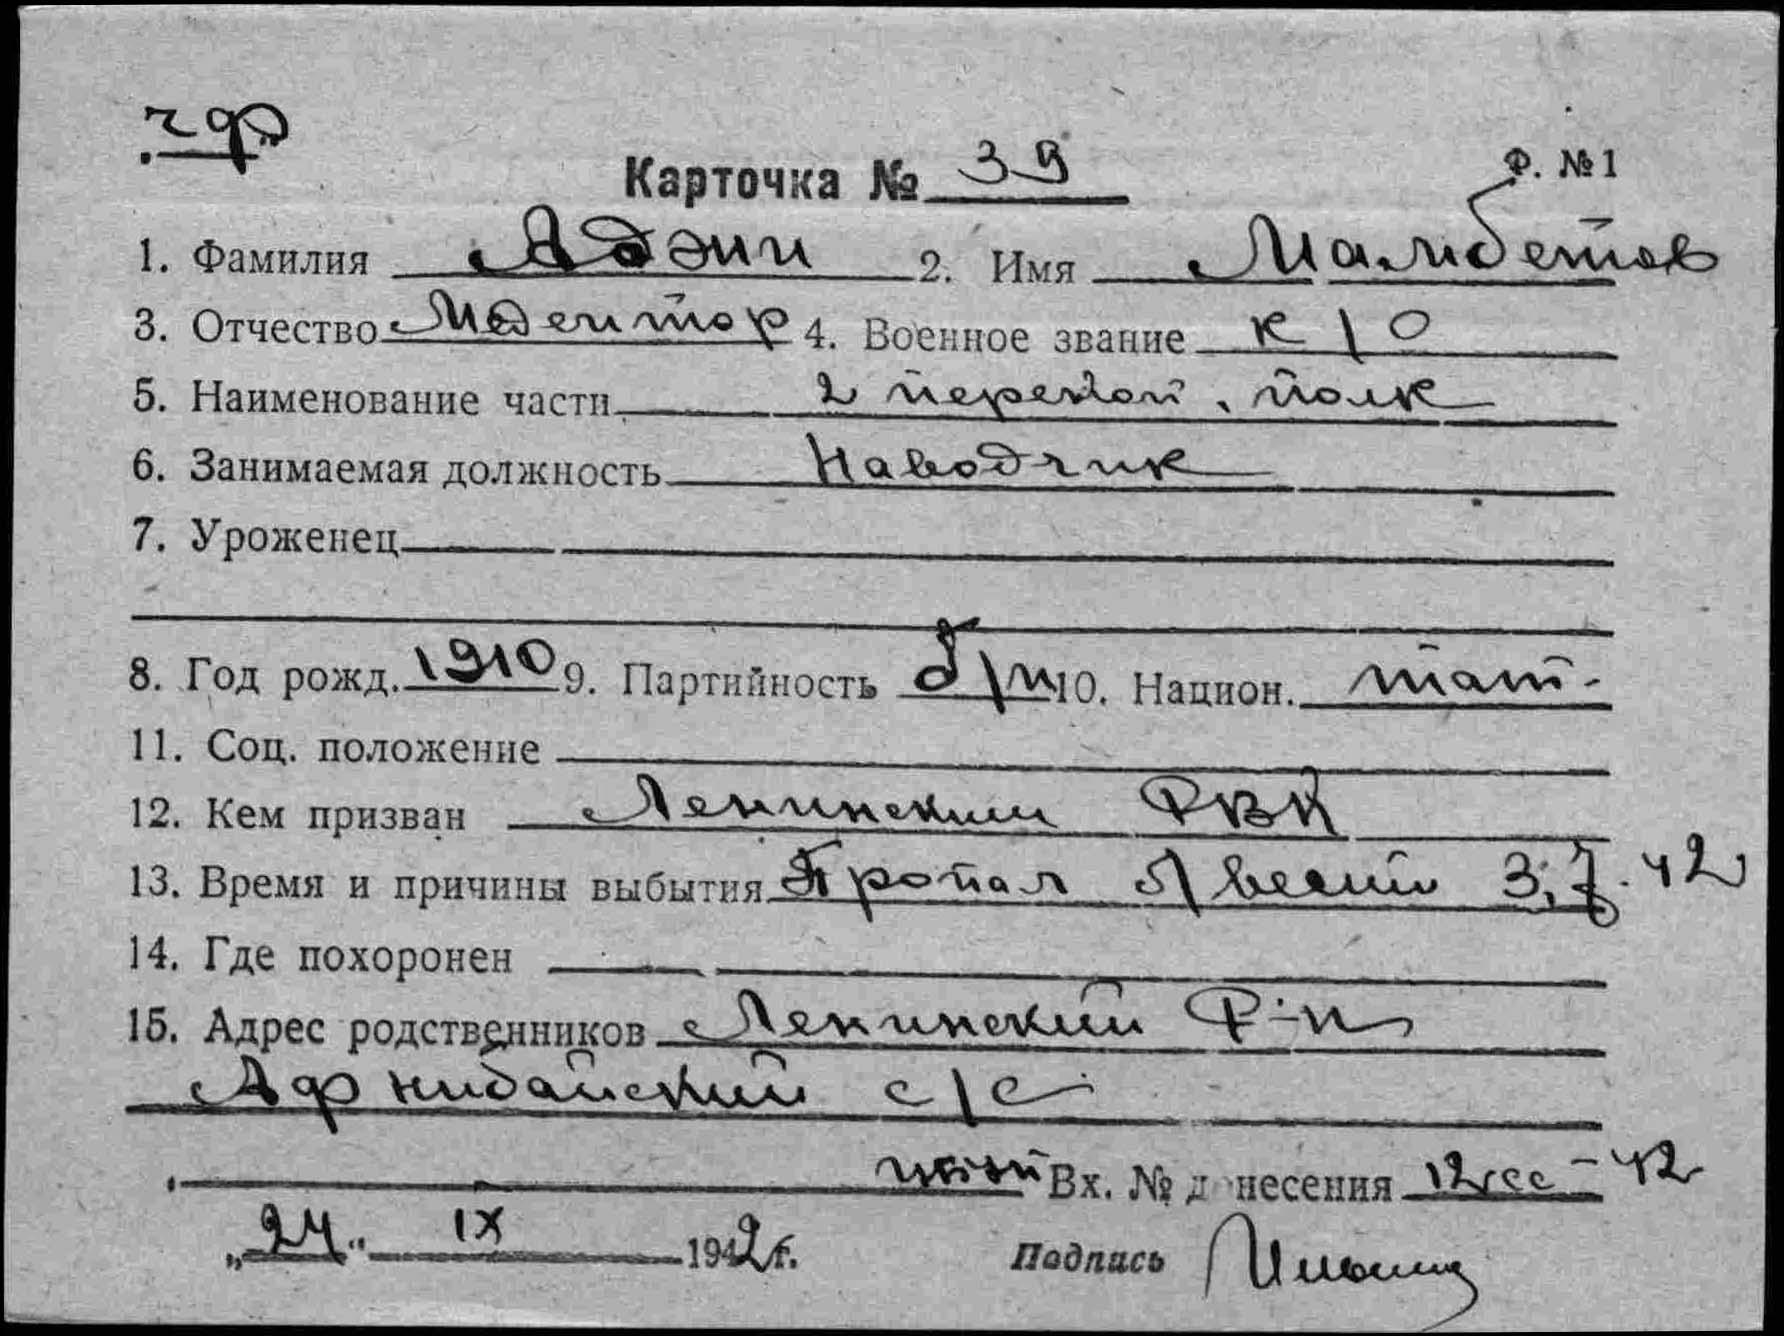 чф
Карточка № 39
Ф. № 1
1. Фамилия Аджи 2. Имя Мамбетов
3. Отчество 4. Военное звание к/о
5. Наименование части 2 полк
6. Занимаемая должность Наводчик
7. Уроженец
8. Год рожд. 1910 9. Партийность б/п 10. Национ. тат.
11. Соц. положение
12. Кем призван Ленинским РВК
13. Время и причины выбытия Пропал б/вести 3.7.42
14. Где похоронен
15. Адрес родственников Ленинский р-н
с/с
Вх. № донесения 42
„24“ IX 1942 г. Подпись